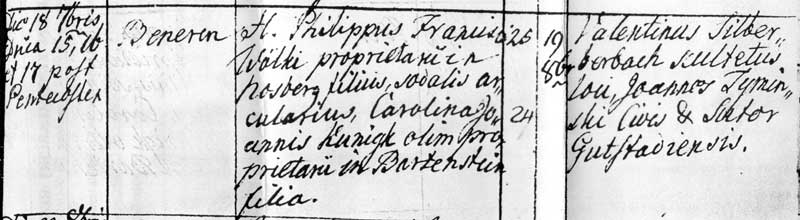 Die 18 7bris
Dnica 15, 16
et 17 post
Pentecosten
Beneren
H. Philippus Francis
Wölki proprietarii in
hosberg filius, sodalis ar-
cularius, Carolina Jo-
annis Kunigk olim pro-
prietarii in Bartenstein
filia.
26
24
19
8br
Valentinus Silber-
berbach scultetus
loci, Joannes Tymin-
ski Civis & Sutor
Gutstadiensis.